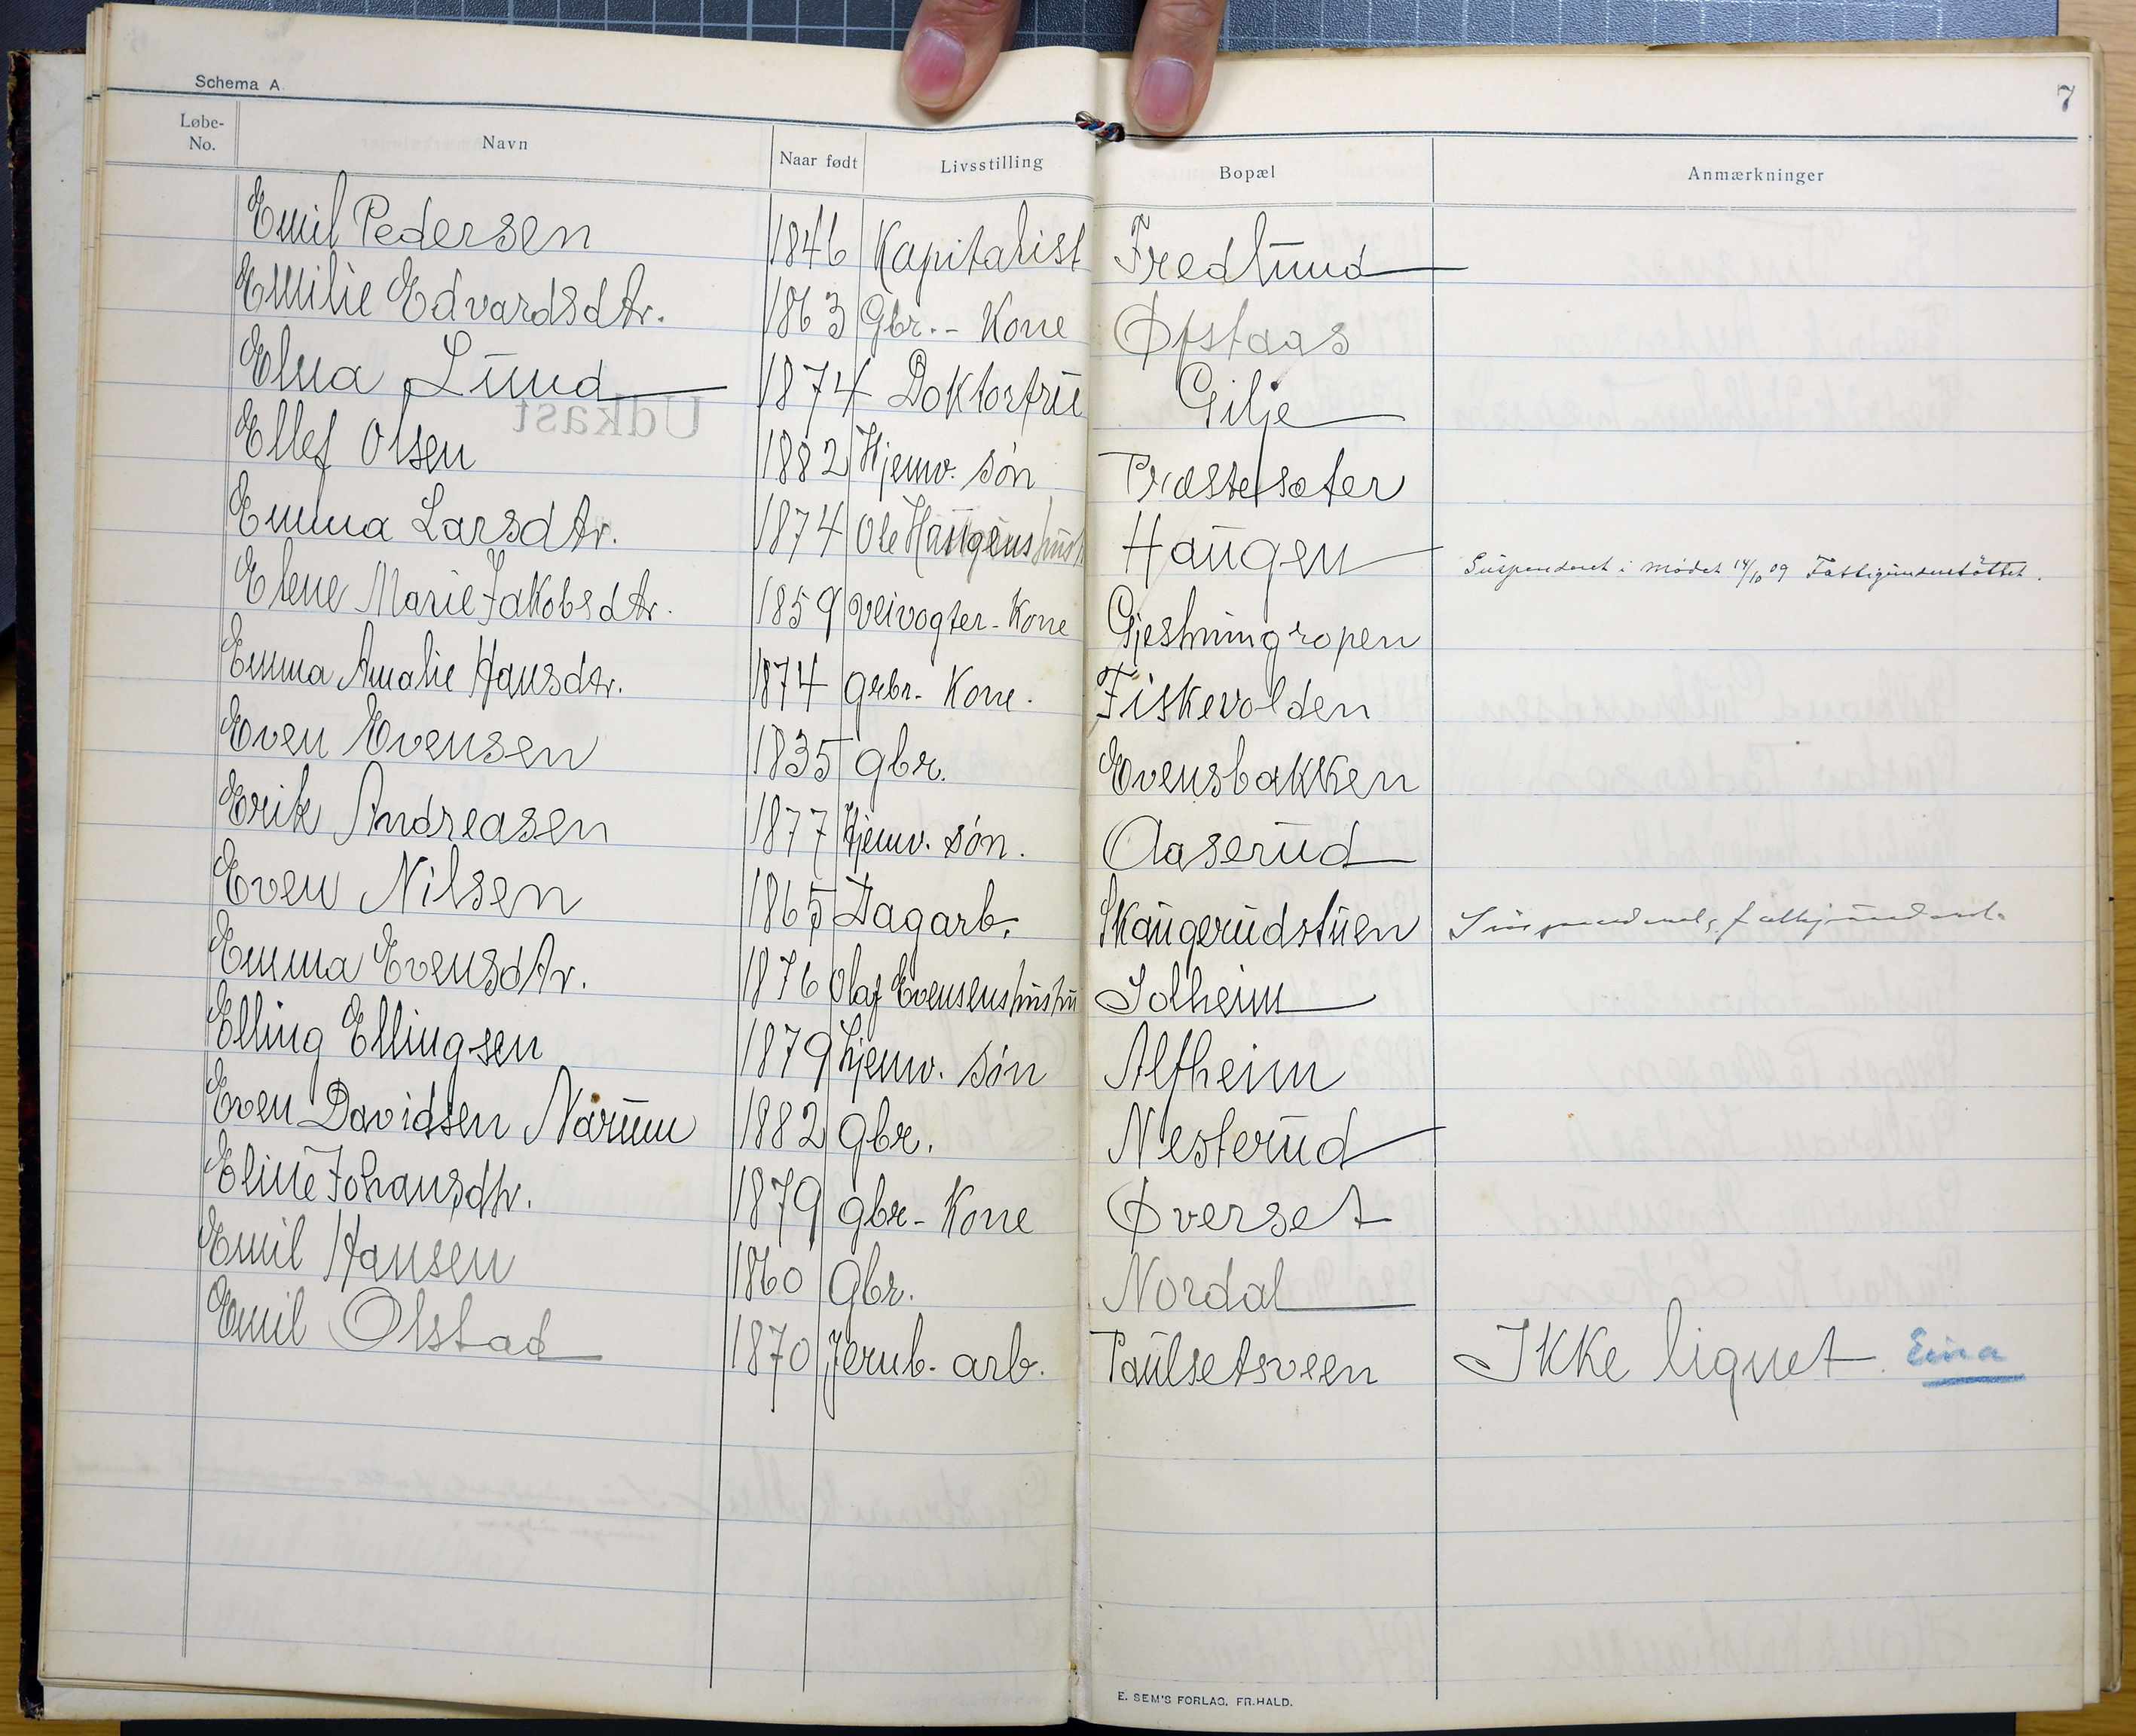 Schema A.
7
Løbe-No. Navn Naar født Livsstilling Bopæl Anmærkninger
Emil Pedersen 1846 Kapitalist Fredlund
Emilie Edvardsdtr. 1863 Gbr. - Kone Øfstaas
Elna Lund 1874 Doktorfru Gilje
Udkast
Ellef Olsen 1882 Hjemv. søn Præstesæter
Emma Larsdtr. 1874 Ole Haugens hust Haugen Suspenderet i mødet 14/10 09 Fattigunderstøttet.
Elene Marie Jakobsdtr. 1859 Veivogter - Kone Gjestrumgropen
Emma Amalie Hansdtr. 1874 grbr. Kone. Fiskevolden
Even Evensen 1835 gbr. Evensbakken
Erik Andreasen 1877 Hjemv. søn. Aaserud
Even Nilsen 1865 Dagarb. Skaugerudstuen
Emma Evensdtr. 1876 Olaf Evensens hustru Solheim
Elling Ellingsen 1879 hjemv. søn Alfheim
Even Davidsen Narum 1882 gbr. Nesterud
Eline Johansdtr. 1879 gbr - Kone Øverset
Emil Hansen 1860 Gbr. Nordal
Emil Olstad 1870 Jernb. arb. Paulsetsveen Ikke lignet. Eina
E. SEM'S FORLAG, FR.HALD.